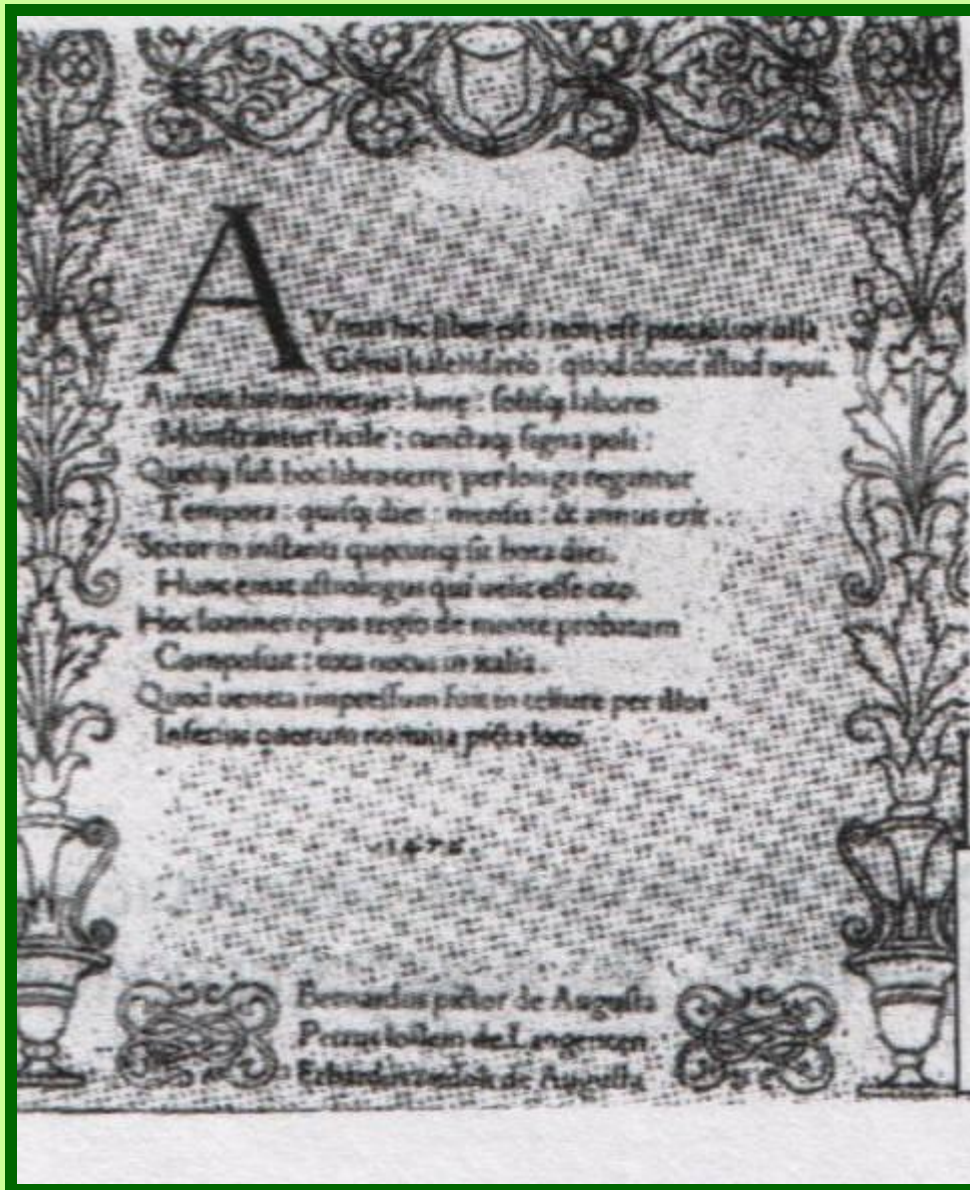 AVreus hic liber est : non est preciosior ulla
Gēma kalendario : quod docet istud opus.
Aureus hic numerus : lune : solisq; labores
Monstrantur facile : cunctaq; signa poli :
Quotq; sub hoc libro terre per longa regantur
Tempora : quisq; dies : mensis : & annus erit .
Scitur in instanti quecunq; sit hora diei .
Hunc emat astrologus qui uelit esse cito.
Hoc Ioannes opus regio de monte probatum
Composuit : tota notus in italia .
Quod ueneta impressum fuit in tellure per illos
Inferius quorum nomina picta loco .
.1476.
Bernardus pictor de Augusta
Petrus loslein de Langencen
Erhardus ratdolt de Augusta